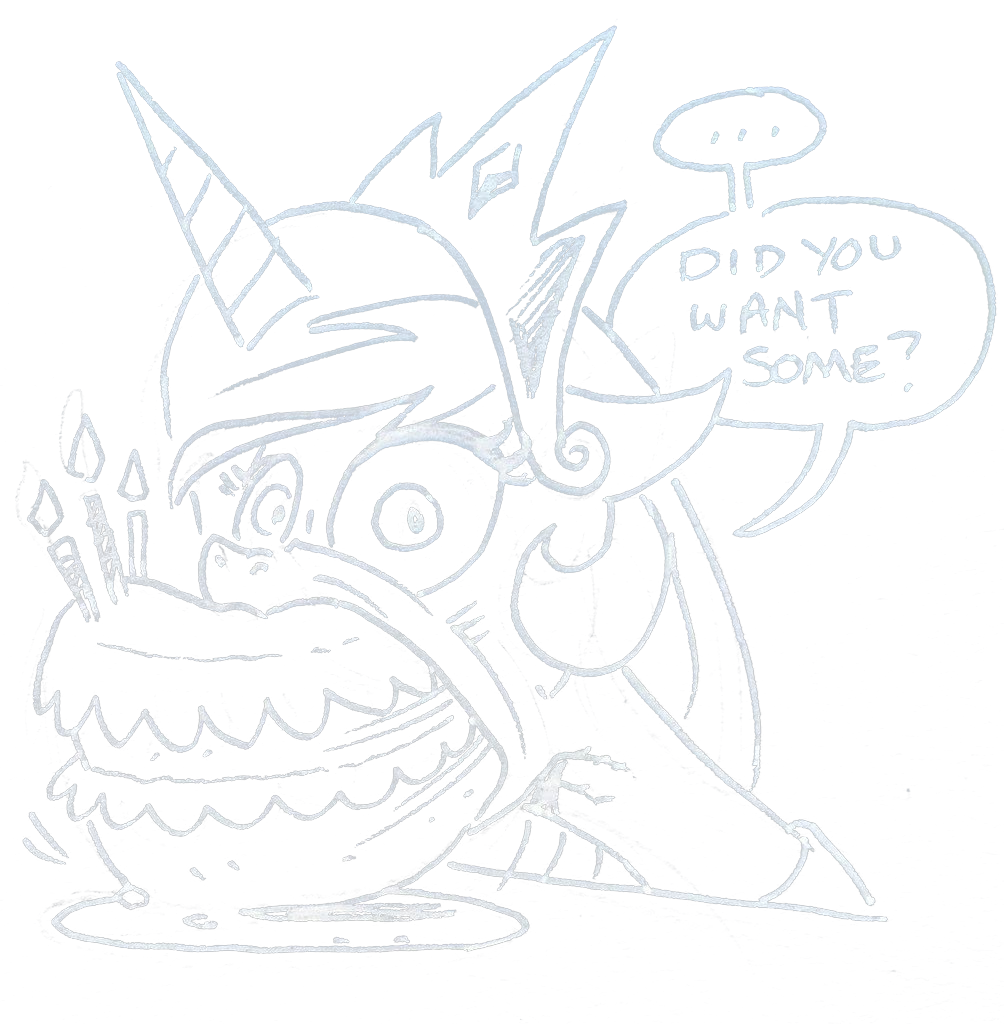 ...
DID YOU
WANT
SOME?